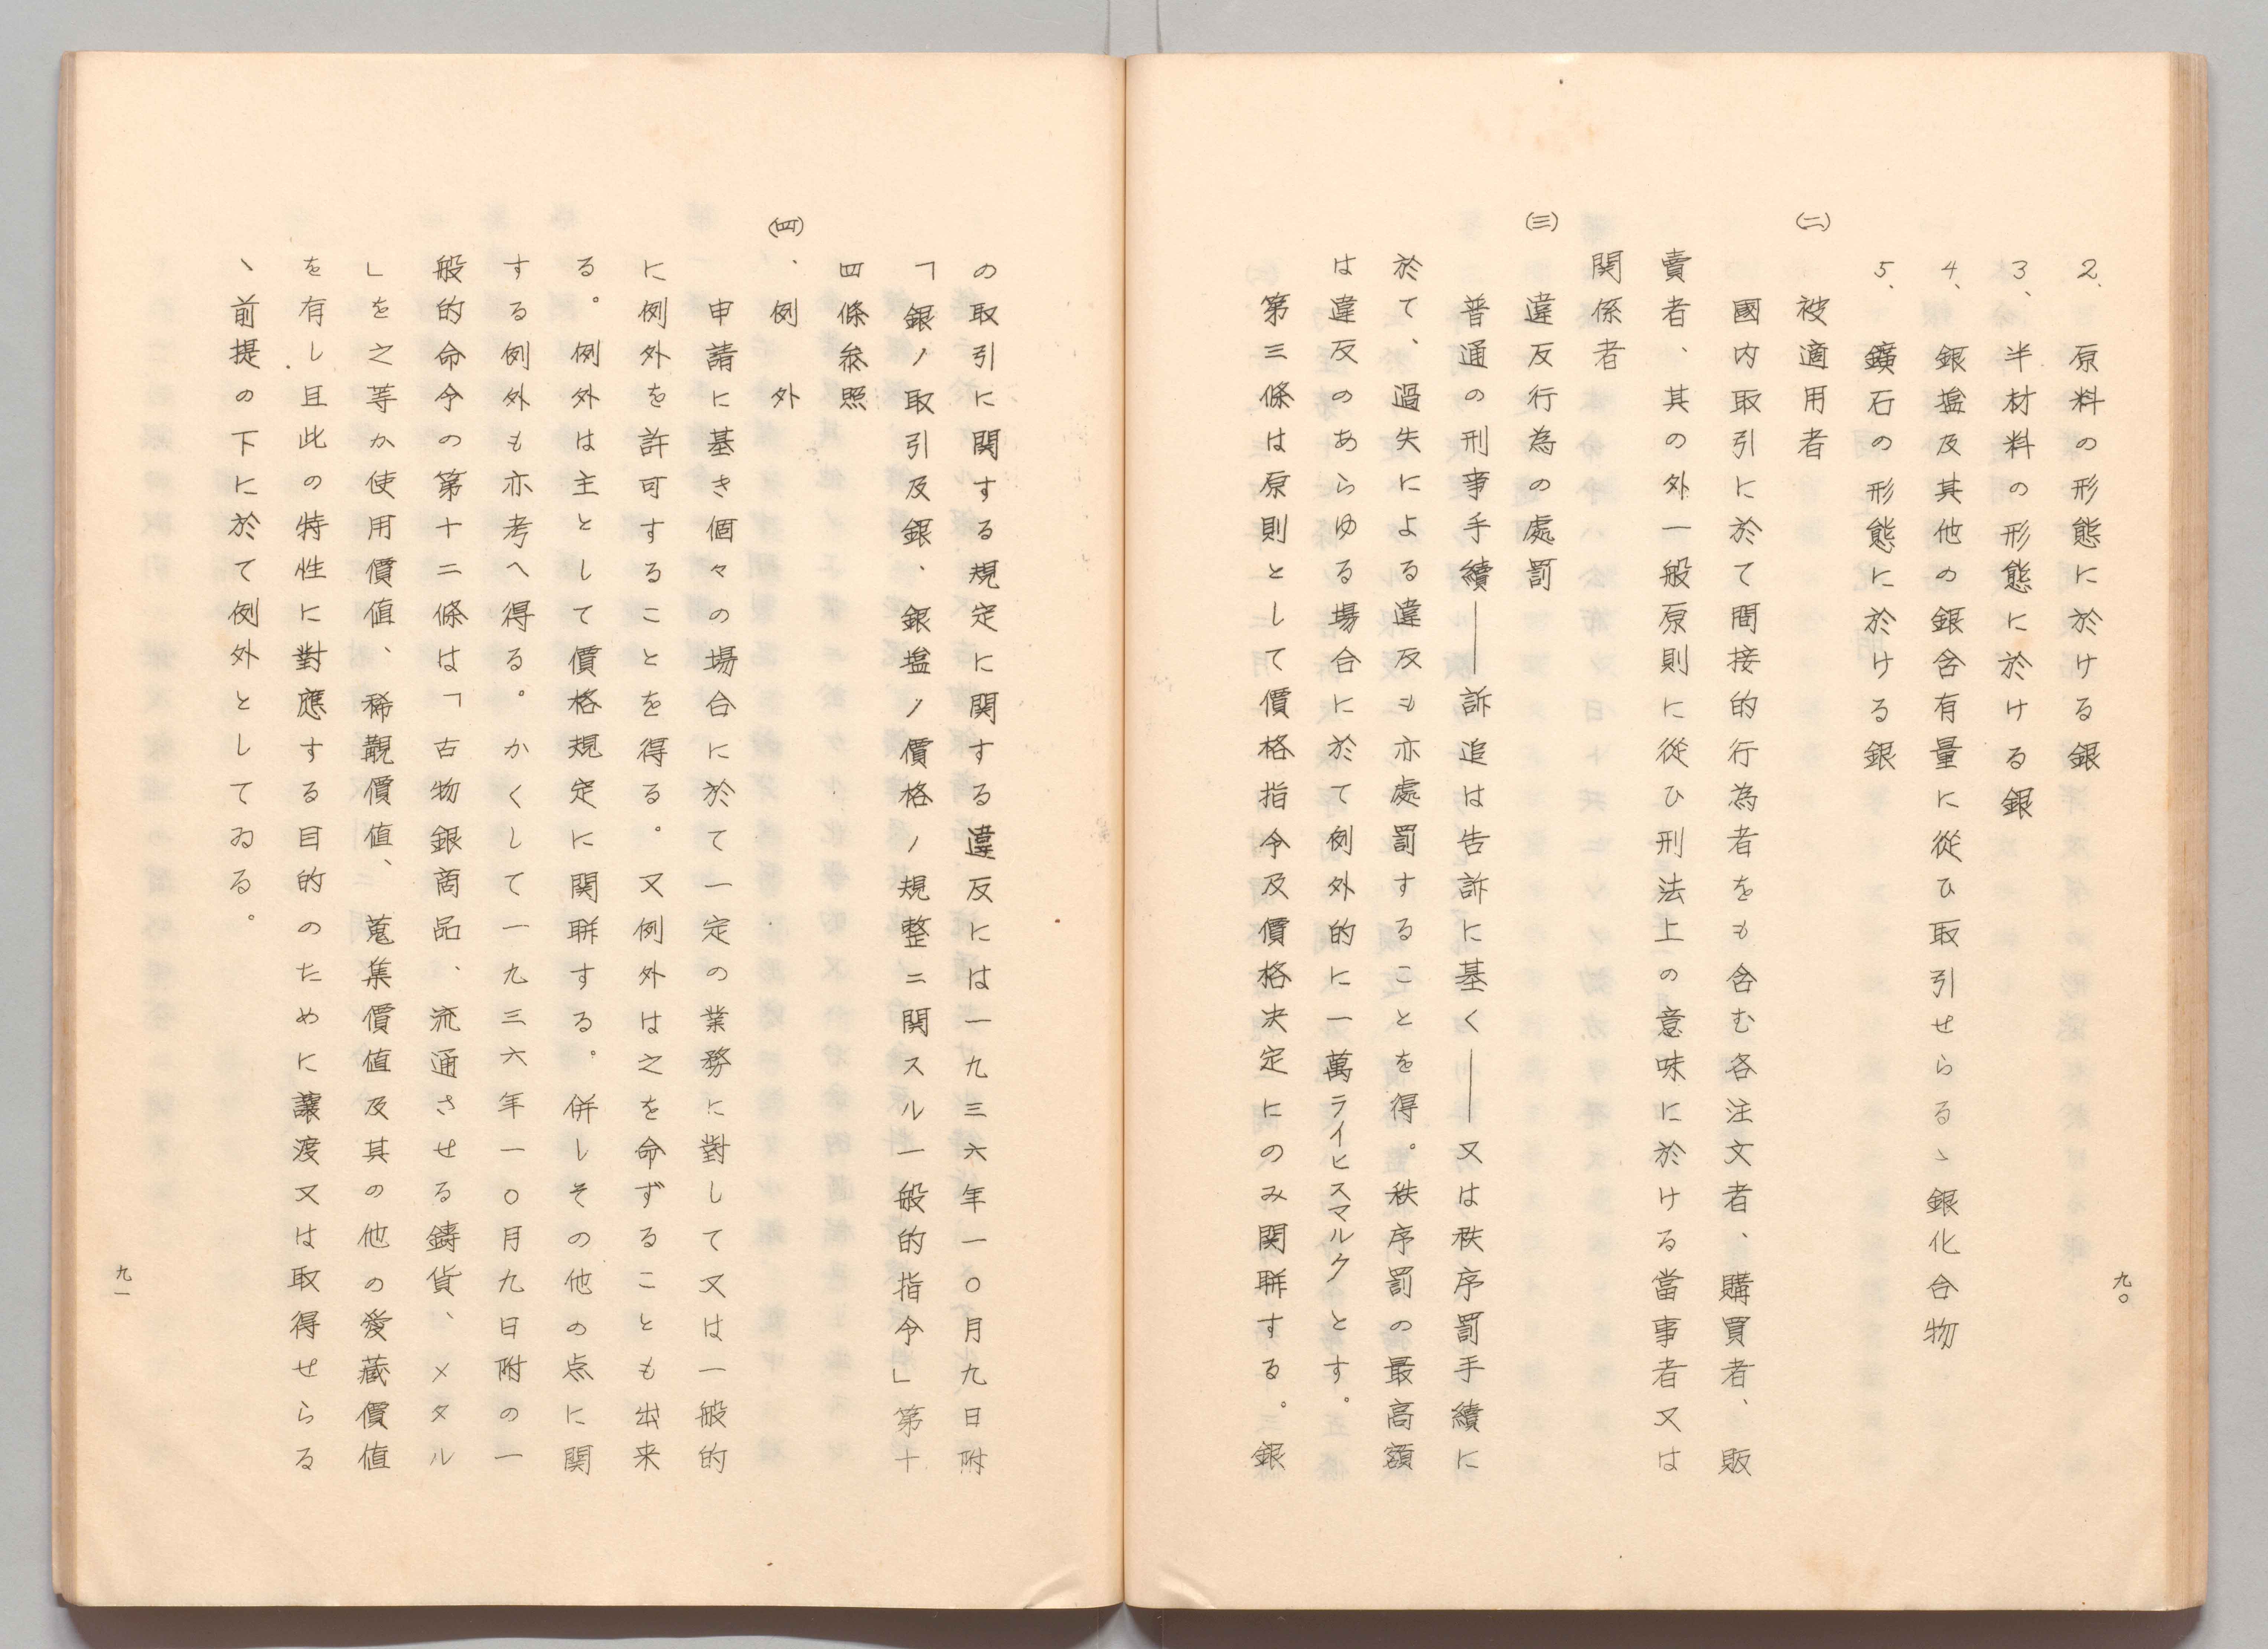 2、原料の形態に於ける銀
3、半材料の形態に於ける銀
4、銀塩及其他の銀含有量に從ひ取引せらるゝ銀化合物
5、鑛石の形態に於ける銀
(二)被適用者
國内取引に於て間接的行為者をも含む各注文者、購買者、販
賣者、其の外一般原則に從ひ刑法上の意味に於ける當事者又は
関係者
(三)違反行為の處罰
普通の刑事手續——訴追は告訴に基く——又は秩序罰手續に
於て、過失による違反も亦處罰することを得。秩序罰の最高額
は違反のあらゆる場合に於て例外的に一萬ライヒスマルクとす。
第三條は原則として價格指令及價格決定にのみ関聯する。銀
九〇
の取引に関する規定に関する違反には一九三六年一〇月九日附
「銀ノ取引及銀、銀塩ノ價格ノ規整ニ関スル一般的指令」第十
四條参照
(四)、例外
申請に基き個々の場合に於て一定の業務に對して又は一般的
に例外を許可することを得る。又例外は之を命ずることも出来
る。例外は主として價格規定に関聯する。併しその他の点に関
する例外も亦考へ得る。かくして一九三六年一〇月九日附の一
般的命令の第十二條は「古物銀商品、流通させる鋳貨、メタル
」を之等か使用價値、稀覯價値、蒐集價値及其の他の愛蔵價値
を有し且此の特性に對應する目的のために讓渡又は取得せらる
、前提の下に於て例外としてゐる。
九一